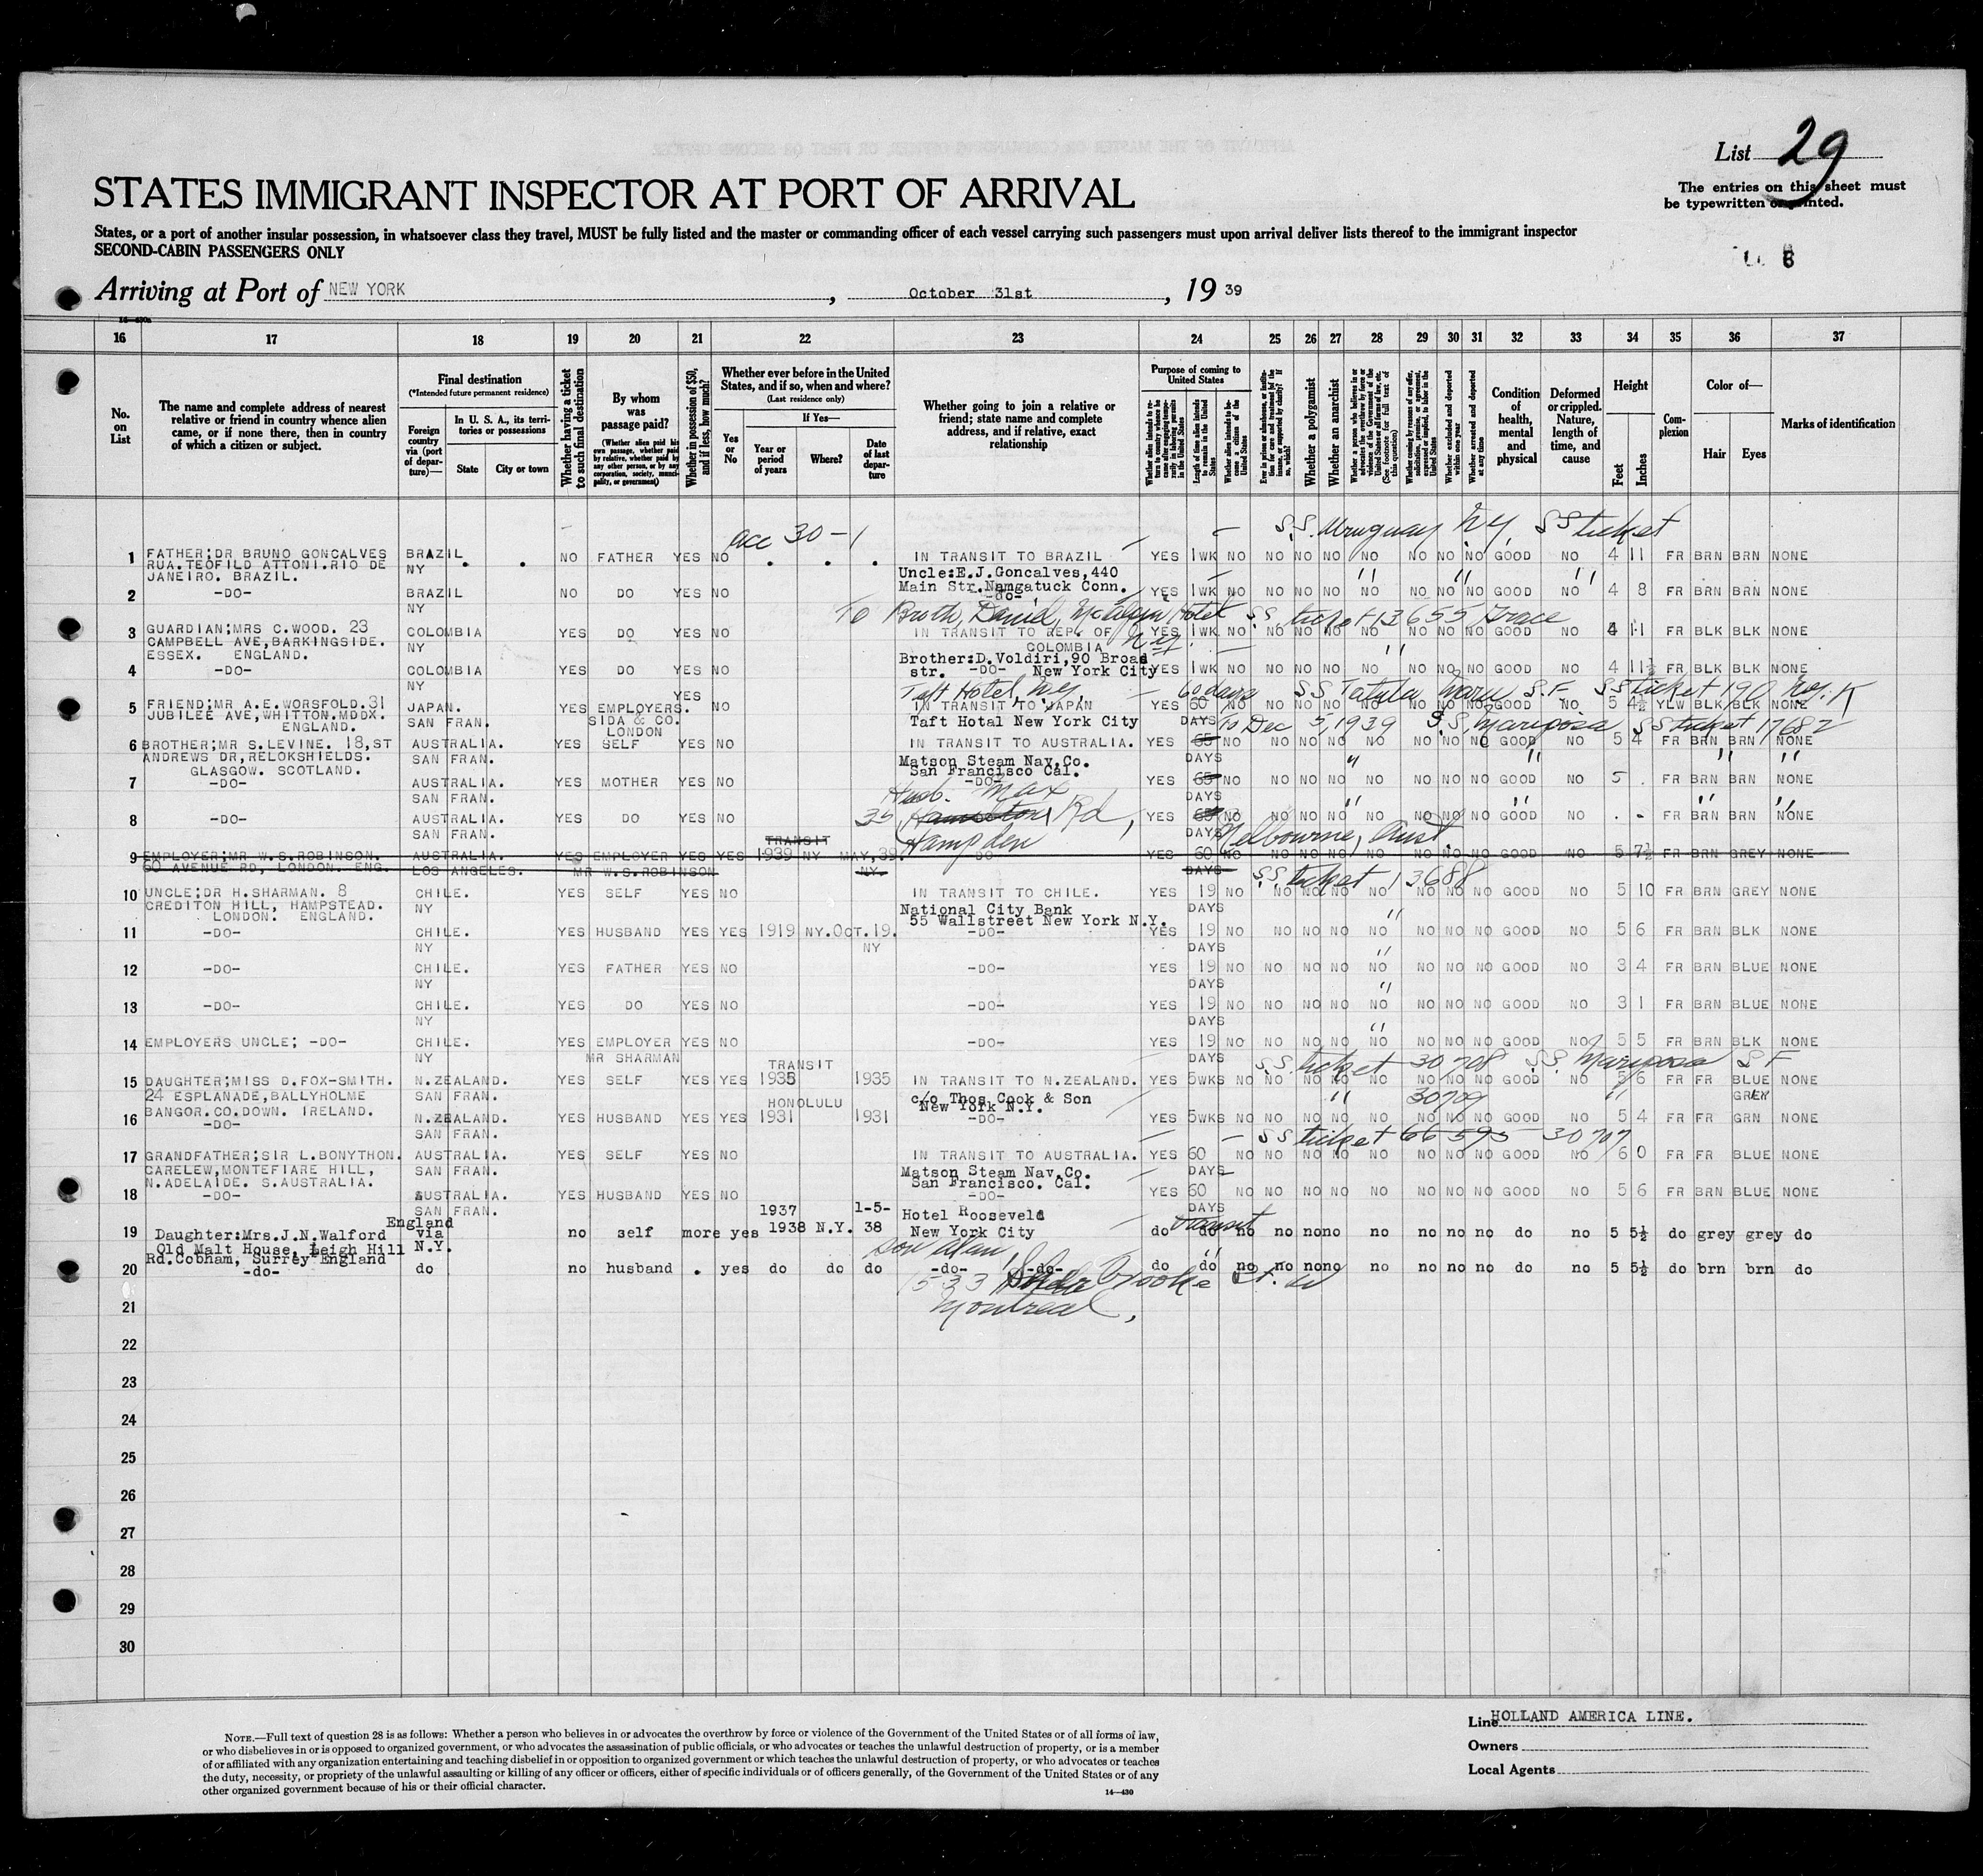 List 29
The entries on this sheet must
be typewritten or printed.
STATES IMMIGRANT INSPECTOR AT PORT OF ARRIVAL
States, or a port of another insular possession, in whatsoever class they travel, MUST be fully listed and the master or commanding officer of each vessel carrying such passengers must upon arrival deliver lists thereof to the immigrant inspector
SECOND-CABIN PASSENGERS ONLY
Arriving at Port of NEW YORK, October 31st, 1939
16 17 18 19 20 21 22 23 24 25 26 27 28 29 30 31 32 33 34 35 36 37
No. on List
The name and complete address of nearest relative or friend in country whence alien came, or if none there, then in country of which a citizen or subject.
Final destination
(*Intended future permanent residence)
Foreign country via (port of departure)—
In U. S. A., its territories or possessions
State
City or town
Whether having a ticket to such final destination
By whom was passage paid?
(Whether alien paid his own passage, whether paid by relative, whether paid by any other person, or by any corporation, society, municipality, or government)
Whether in possession of $50, and if less, how much?
Whether ever before in the United States, and if so, when and where?
(Last residence only)
Yes or No
If Yes—
Year or period of years
Where?
Date of last departure
Whether going to join a relative or friend; state name and complete address, and if relative, exact relationship
Purpose of coming to United States
Whether alien intends to return to country whence he came after engaging temporarily in laboring pursuits in the United States
Length of time alien intends to remain in the United States
Whether alien intends to become a citizen of the United States
Whether a polygamist
Whether an anarchist
Whether excluded and deported within one year
Whether arrested and deported at any time
Condition of health, mental and physical
Deformed or crippled. Nature, length of time, and cause
Height
Feet
Inches
Complexion
Color of—
Hair
Eyes
Marks of identification
acc 30-1 S.S. Uruguay N.Y. SS ticket
1 FATHER;DR BRUNO GONCALVES BRAZIL NO FATHER YES NO IN TRANSIT TO BRAZIL YES 1WK NO NO NO NO NO NO NO NO GOOD NO 4 11 FR BRN BRN NONE
RUA.TEOFILD ATTONI.RIO DE NY
JANEIRO. BRAZIL. Uncle:E.J.Goncalves,440
2 -DO- BRAZIL NO DO YES NO Main Str.Nangatuck Conn. YES 1WK NO NO NO NO NO NO NO NO GOOD NO 4 8 FR BRN BRN NONE
NY -do-
To Hotel S.S. ticket 13655 Grace
3 GUARDIAN;MRS C.WOOD. 23 COLOMBIA YES DO YES NO IN TRANSIT TO REP. OF YES 1WK NO NO NO NO NO NO NO NO GOOD NO 4 11 FR BLK BLK NONE
CAMPBELL AVE,BARKINGSIDE. NY COLOMBIA
ESSEX. ENGLAND. Brother:D.Voldiri,90 Broad
4 -DO- COLOMBIA YES DO YES NO str. -DO- New York City YES 1WK NO NO NO NO NO NO NO NO GOOD NO 4 11½ FR BLK BLK NONE
NY YES Taft Hotel, N.Y. 60 days SS Tatuta Maru S.F SS ticket 190
5 FRIEND;MR A.E.WORSFOLD.31 JAPAN. YES EMPLOYERS. NO IN TRANSIT TO JAPAN YES 60 NO NO NO NO NO NO NO NO GOOD NO 5 4½ YLW BLK BLK NONE
JUBILEE AVE,WHITTON.MDDX. SAN FRAN. SIDA & CO. Taft Hotal New York City DAYS To Dec 5, 1939 S.S. Mariposa SS ticket 17682
ENGLAND. LONDON
6 BROTHER;MR S.LEVINE. 18,ST AUSTRALIA. YES SELF YES NO IN TRANSIT TO AUSTRALIA. YES 65 NO NO NO NO NO NO NO NO GOOD NO 5 4 FR BRN BRN NONE
ANDREWS DR,RELOKSHIELDS. SAN FRAN. Matson Steam Nav,Co. DAYS
GLASGOW. SCOTLAND. San Francisco Cal.
7 -DO- AUSTRALIA. YES MOTHER YES NO -DO- YES 65 NO NO NO NO NO NO NO NO GOOD NO 5 . FR BRN BRN NONE
SAN FRAN. Husb. Max DAYS
8 -DO- AUSTRALIA. YES DO YES NO 35, Rd, YES 65 NO NO NO NO NO NO NO NO GOOD NO . - FR BRN BRN NONE
SAN FRAN. TRANSIT Hampden DAYS Melbourne, Aust.
9 EMPLOYER;MR W.S.ROBINSON. AUSTRALIA. YES EMPLOYER YES YES 1939 NY MAY,39. DO YES 60 NO NO NO NO NO NO NO NO GOOD NO 5 7½ FR BRN GREY NONE
60 AVENUE RD, LONDON. ENG. LOS ANGELES. MR W.S.ROBINSON NY. DAYS S.S. ticket 13688
10 UNCLE;DR H.SHARMAN. 8 CHILE. YES SELF YES NO IN TRANSIT TO CHILE. YES 19 NO NO NO NO NO NO NO NO GOOD NO 5 10 FR BRN GREY NONE
CREDITON HILL, HAMPSTEAD. NY National City Bank DAYS
LONDON. ENGLAND. 55 Wallstreet New York N.Y.
11 -DO- CHILE. YES HUSBAND YES YES 1919 NY.OCT.19. -DO- YES 19 NO NO NO NO NO NO NO NO GOOD NO 5 6 FR BRN BLK NONE
NY NY DAYS
12 -DO- CHILE. YES FATHER YES NO -DO- YES 19 NO NO NO NO NO NO NO NO GOOD NO 3 4 FR BRN BLUE NONE
NY DAYS
13 -DO- CHILE. YES DO YES NO -DO- YES 19 NO NO NO NO NO NO NO NO GOOD NO 3 1 FR BRN BLUE NONE
NY DAYS
14 EMPLOYERS UNCLE; -DO- CHILE. YES EMPLOYER YES NO -DO- YES 19 NO NO NO NO NO NO NO NO GOOD NO 5 5 FR BRN BLK NONE
NY MR SHARMAN TRANSIT DAYS S.S. ticket 30708 S.S. Mariposa S F
15 DAUGHTER;MISS D.FOX-SMITH. N.ZEALAND. YES SELF YES YES 1935 1935 IN TRANSIT TO N.ZEALAND. YES 5WKS NO NO NO NO NO NO NO NO GOOD NO 5 6 FR FR BLUE NONE
24 ESPLANADE,BALLYHOLME SAN FRAN. HONOLULU c/o Thos.Cook & Son 30709 GREY
BANGOR.CO.DOWN. IRELAND. New York N.Y.
16 -DO- N.ZEALAND. YES HUSBAND YES YES 1931 1931 -DO- YES 5WKS NO NO NO NO NO NO NO NO GOOD NO 5 4 FR FR GRN NONE
SAN FRAN. SS ticket 66595 30707
17 GRANDFATHER;SIR L.BONYTHON. AUSTRALIA. YES SELF YES NO IN TRANSIT TO AUSTRALIA. YES 60 NO NO NO NO NO NO NO NO GOOD NO 6 0 FR FR BLUE NONE
CARELEW,MONTEFIARE HILL, SAN FRAN. Matson Steam Nav,Co. DAYS
N.ADELAIDE. S.AUSTRALIA. San Francisco. Cal.
18 -DO- AUSTRALIA. YES HUSBAND YES NO -DO- YES 60 NO NO NO NO NO NO NO NO GOOD NO 5 6 FR BRN BLUE NONE
SAN FRAN. 1937 1-5- Hotel Roosevelt DAYS
England transit
19 Daughter:Mrs.J.N.Walford via no self more yes 1938 N.Y. 38 New York City do do no no no no no no no no do no 5 5½ do grey grey do
Old Malt House, Leigh Hill N.Y. son Alan
Rd.Cobham, Surrey England
20 -do- do no husband . yes do do do -do- -do- do do no no no no no no no no do no 5 5½ do brn brn do
1533 St. W
21 Montreal,
22
23
24
25
26
27
28
29
30
NOTE.—Full text of question 28 is as follows: Whether a person who believes in or advocates the overthrow by force or violence of the Government of the United States or of all forms of law,
or who disbelieves in or is opposed to organized government, or who advocates the assassination of public officials, or who advocates or teaches the unlawful destruction of property, or is a member
of or affiliated with any organization entertaining and teaching disbelief in or opposition to organized government or which teaches the unlawful destruction of property, or who advocates or teaches
the duty, necessity, or propriety of the unlawful assaulting or killing of any officer or officers, either of specific individuals or of officers generally, of the Government of the United States or of any
other organized government because of his or their official character.
14—430
Line HOLLAND AMERICA LINE.
Owners
Local Agents